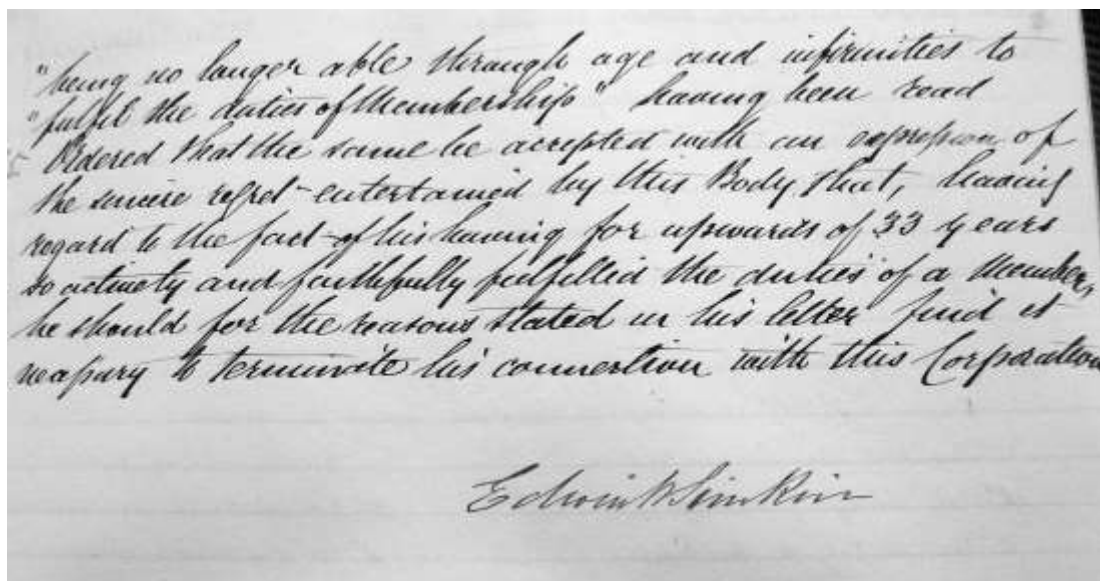 "being no longer able through age and infirmities to
"fulfil the duties of Membership" having been read
Ordered that the same be accepted with an expression of
the sincere regret entertained by this Body that, having
regard to the fact of his having for upwards of 33 years
so actively and faithfully fulfilled the duties of a Member,
he should for the reasons stated in his letter find it
necessary to terminate his connection with this Corporation
Edwin